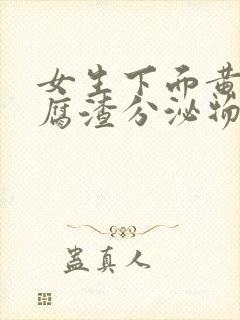 女生下面黄
腐渣分泌物
蛊真人